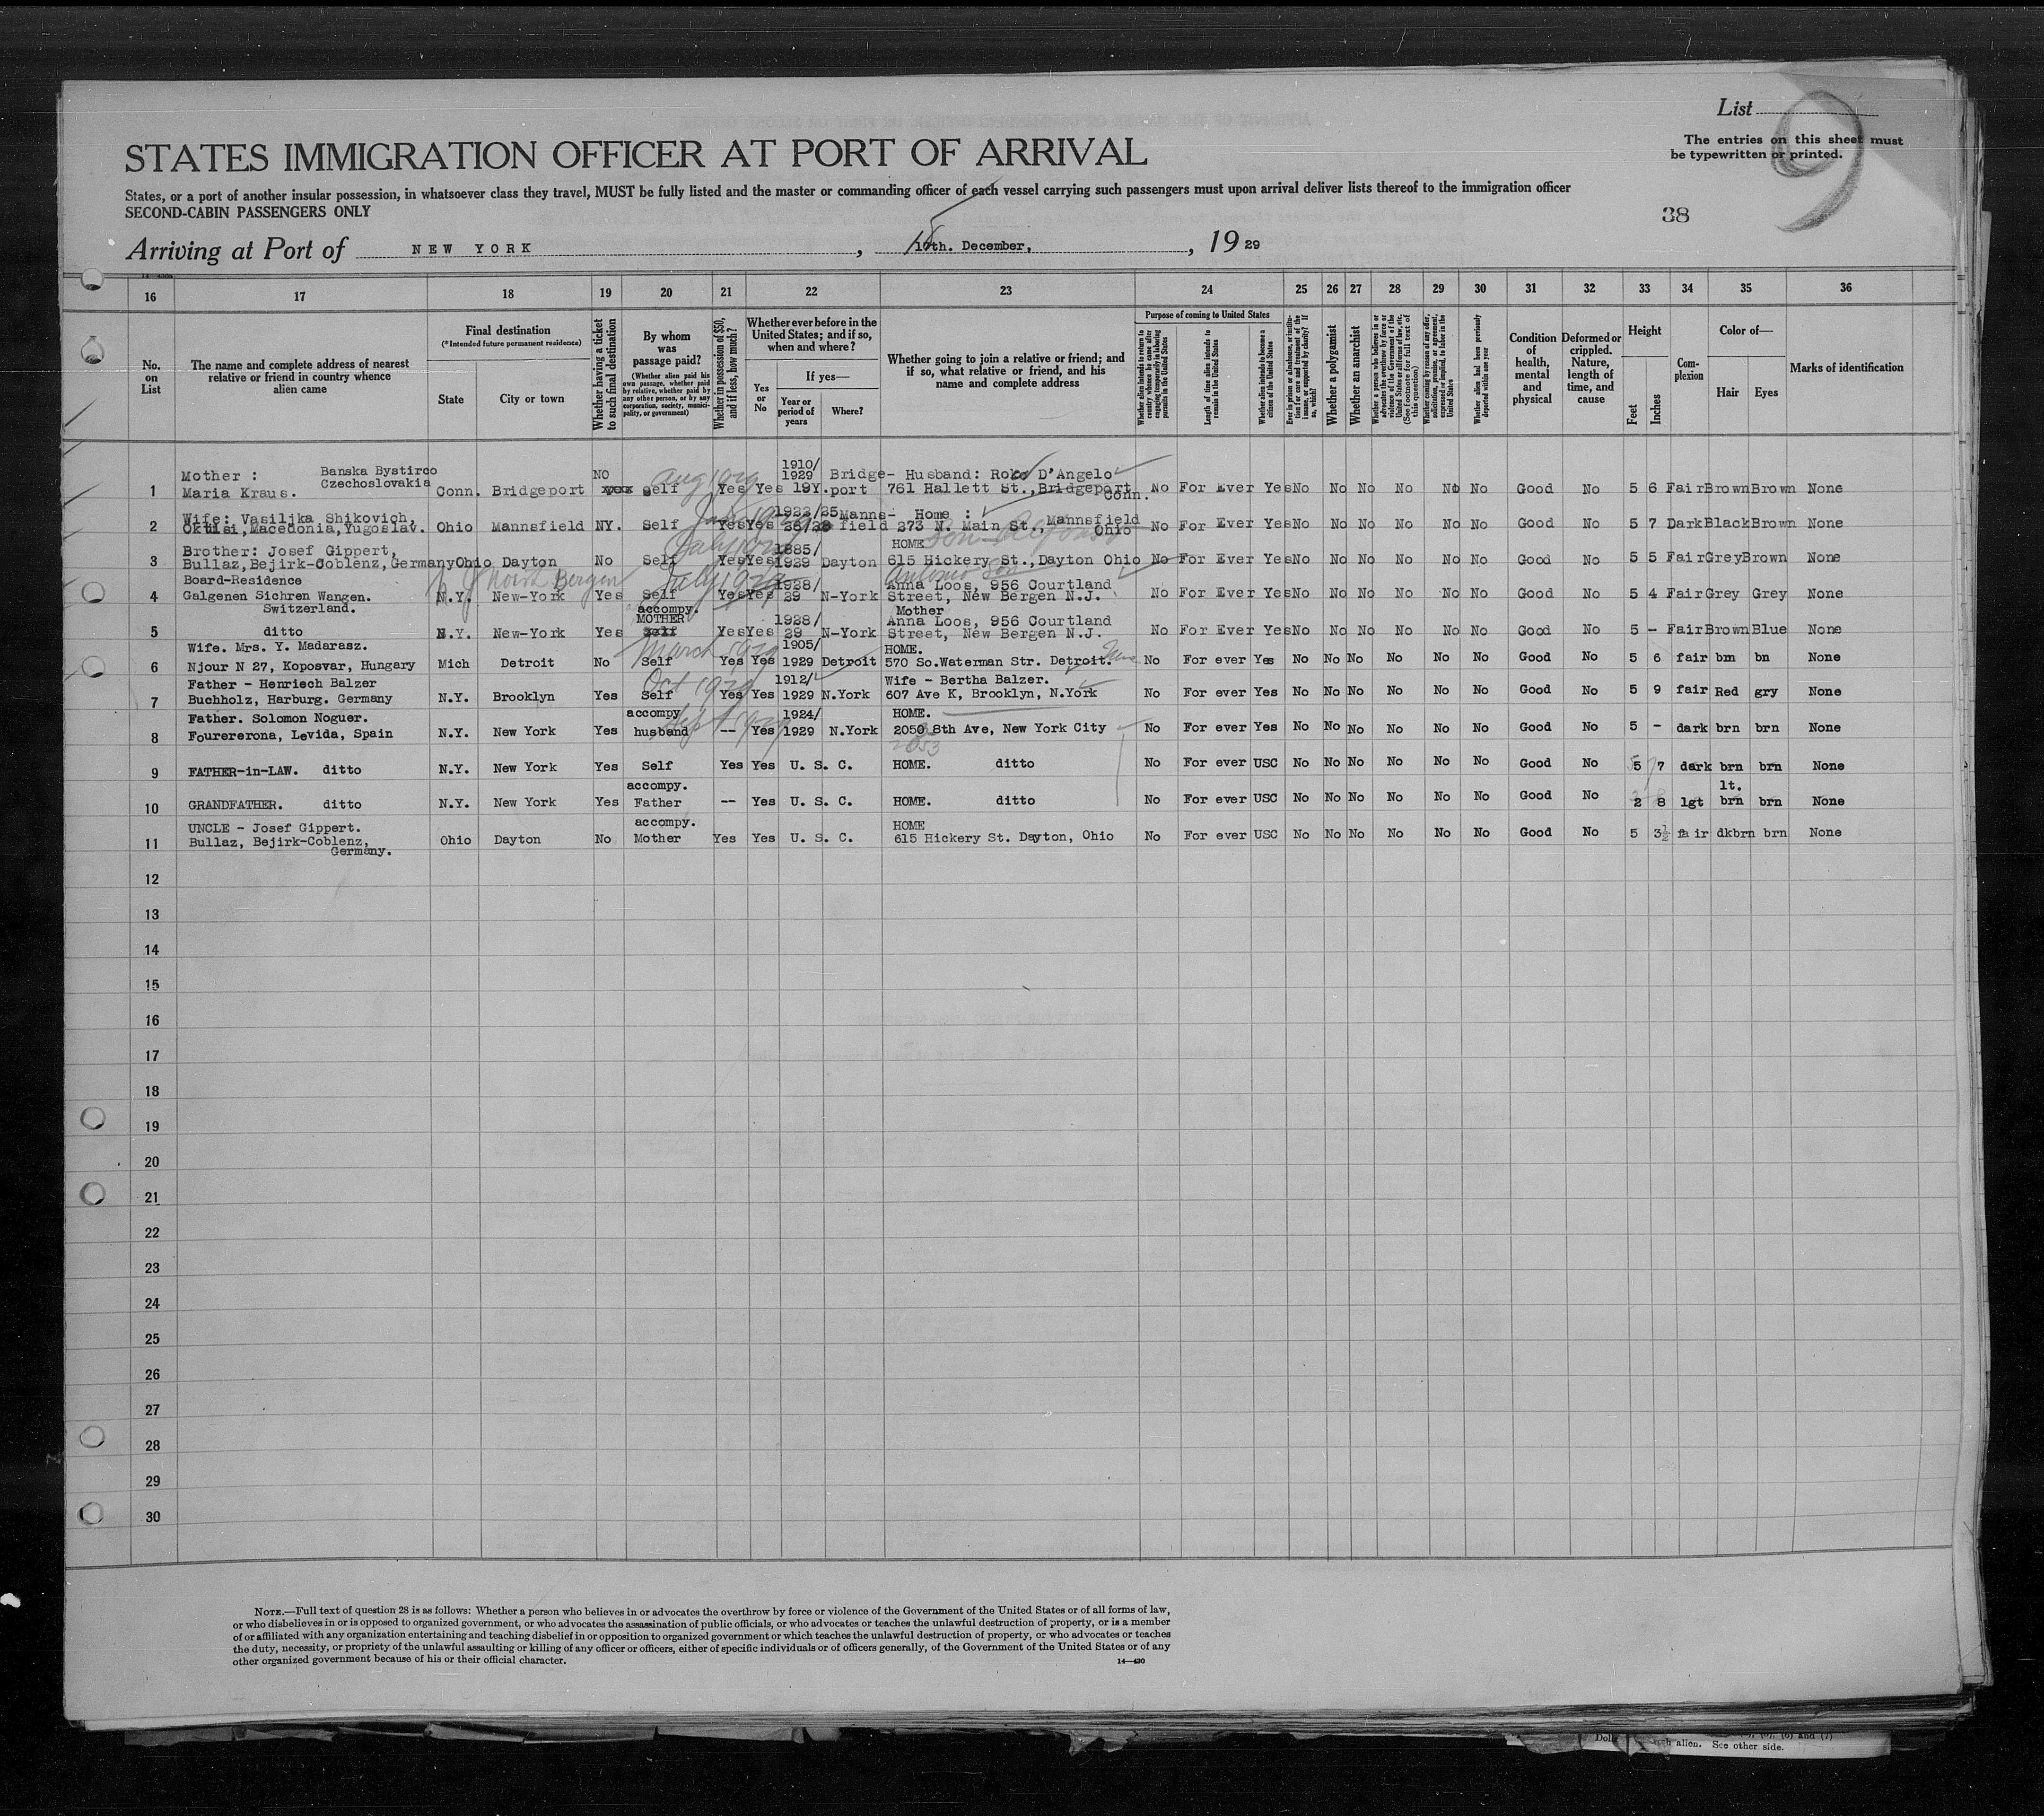 List
The entries on this sheet must
be typewritten or printed.
9
38
STATES IMMIGRATION OFFICER AT PORT OF ARRIVAL
States, or a port of another insular possession, in whatsoever class they travel, MUST be fully listed and the master or commanding officer of each vessel carrying such passengers must upon arrival deliver lists thereof to the immigration officer
SECOND-CABIN PASSENGERS ONLY
Arriving at Port of NEW YORK, 17th. December, , 1929
16 17 18 19 20 21 22 23 24 25 26 27 28 29 30 31 32 33 34 35 36
No. on List
The name and complete address of nearest relative or friend in country whence alien came
Final destination
(*Intended future permanent residence)
State
City or town
Whether having a ticket to such final destination
By whom was passage paid?
(Whether alien paid his own passage, whether paid by relative, whether paid by any other person, or by any corporation, society, municipality, or government)
Whether in possession of $50, and if less, how much?
Whether ever before in the United States; and if so, when and where?
Yes or No
If yes—
Year or period of years
Where?
Whether going to join a relative or friend; and if so, what relative or friend, and his name and complete address
Purpose of coming to United States
Whether alien intends to return to country whence he came after engaging temporarily in laboring pursuits in the United States
Length of time alien intends to remain in the United States
Whether alien intends to become a citizen of the United States
Ever in prison or almshouse, or institution for care and treatment of the insane, or supported by charity? If so, which?
Whether a polygamist
Whether an anarchist
Whether a person who believes in or advocates the overthrow by force or violence of the Government of the United States or all forms of law, etc. (See footnote for full text of this question)
Whether coming by reason of any offer, solicitation, promise, or agreement, expressed or implied, to labor in the United States
Whether alien had been previously deported within one year
Condition of health, mental and physical
Deformed or crippled. Nature, length of time, and cause
Height
Feet
Inches
Complexion
Color of—
Hair
Eyes
Marks of identification
1 Mother : Banska Bystirco Czechoslovakia Maria Kraus. Conn. Bridgeport NO Self Aug 1929 Yes Yes 1910/1929 19Y. Bridge-port Husband: Roko D'Angelo 761 Hallett St., Bridgeport Conn. No For Ever Yes No No No No No No Good No 5 6 Fair Brown Brown None
2 Wife: Vasiljka Shikovich, Oktisi,Macedonia,Yugoslav. Ohio Mannsfield NY. Self Yes Yes 1922/25 26/28 Manns-field Home : 273 N. Main St., Mannsfield Ohio No For Ever Yes No No No No No No Good No 5 7 Dark Black Brown None
3 Brother: Josef Gippert, Bullaz,Bejirk-Coblenz,Germany Ohio Dayton No Self July 1929 Yes Yes 1885/1929 Dayton HOME 615 Hickery St., Dayton Ohio No For Ever Yes No No No No No No Good No 5 5 Fair Grey Brown None
4 Board-Residence Galgenen Sichren Wangen. Switzerland. N.Y. New-York North Bergen Yes Self July 1929 Yes Yes 1928/29 N-York Anna Loos, 956 Courtland Street, New Bergen N.J. No For Ever Yes No No No No No No Good No 5 4 Fair Grey Grey None
5 ditto N.Y. New-York Yes accompy. MOTHER Yes Yes 1928/29 N-York Mother Anna Loos, 956 Courtland Street, New Bergen N.J. No For Ever Yes No No No No No No Good No 5 - Fair Brown Blue None
6 Wife. Mrs. Y. Madarasz. Njour N 27, Koposvar, Hungary Mich Detroit No Self March 1929 Yes Yes 1905/1929 Detroit HOME. 570 So.Waterman Str. Detroit. No For ever Yes No No No No No No Good No 5 6 fair brn bn None
7 Father - Henriech Balzer Buchholz, Harburg. Germany N.Y. Brooklyn Yes Self Oct 1929 Yes Yes 1912/1929 N.York Wife - Bertha Balzer. 607 Ave K, Brooklyn, N.York No For ever Yes No No No No No No Good No 5 9 fair Red gry None
8 Father. Solomon Noguer. Fourererona, Levida, Spain N.Y. New York Yes accompy husband Sept 1929 -- Yes 1924/1929 N.York HOME. 2050 8th Ave, New York City 2053 No For ever Yes No No No No No No Good No 5 - dark brn brn None
9 FATHER-in-LAW. ditto N.Y. New York Yes Self Yes Yes U. S. C. HOME. ditto No For ever USC No No No No No No Good No 5 7 dark brn brn None
10 GRANDFATHER. ditto N.Y. New York Yes accompy. Father -- Yes U. S. C. HOME. ditto No For ever USC No No No No No No Good No 2 8 lgt lt. brn brn None
11 UNCLE - Josef Gippert. Bullaz, Bejirk-Coblenz, Germany. Ohio Dayton No accompy. Mother Yes Yes U. S. C. HOME 615 Hickery St. Dayton, Ohio No For ever USC No No No No No No Good No 5 3½ fair dkbrn brn None
12
13
14
15
16
17
18
19
20
21
22
23
24
25
26
27
28
29
30
NOTE.—Full text of question 28 is as follows: Whether a person who believes in or advocates the overthrow by force or violence of the Government of the United States or of all forms of law,
or who disbelieves in or is opposed to organized government, or who advocates the assassination of public officials, or who advocates or teaches the unlawful destruction of property, or is a member
of or affiliated with any organization entertaining and teaching disbelief in or opposition to organized government or which teaches the unlawful destruction of property, or who advocates or teaches
the duty, necessity, or propriety of the unlawful assaulting or killing of any officer or officers, either of specific individuals or of officers generally, of the Government of the United States or of any
other organized government because of his or their official character.
14—430
alien. See other side.